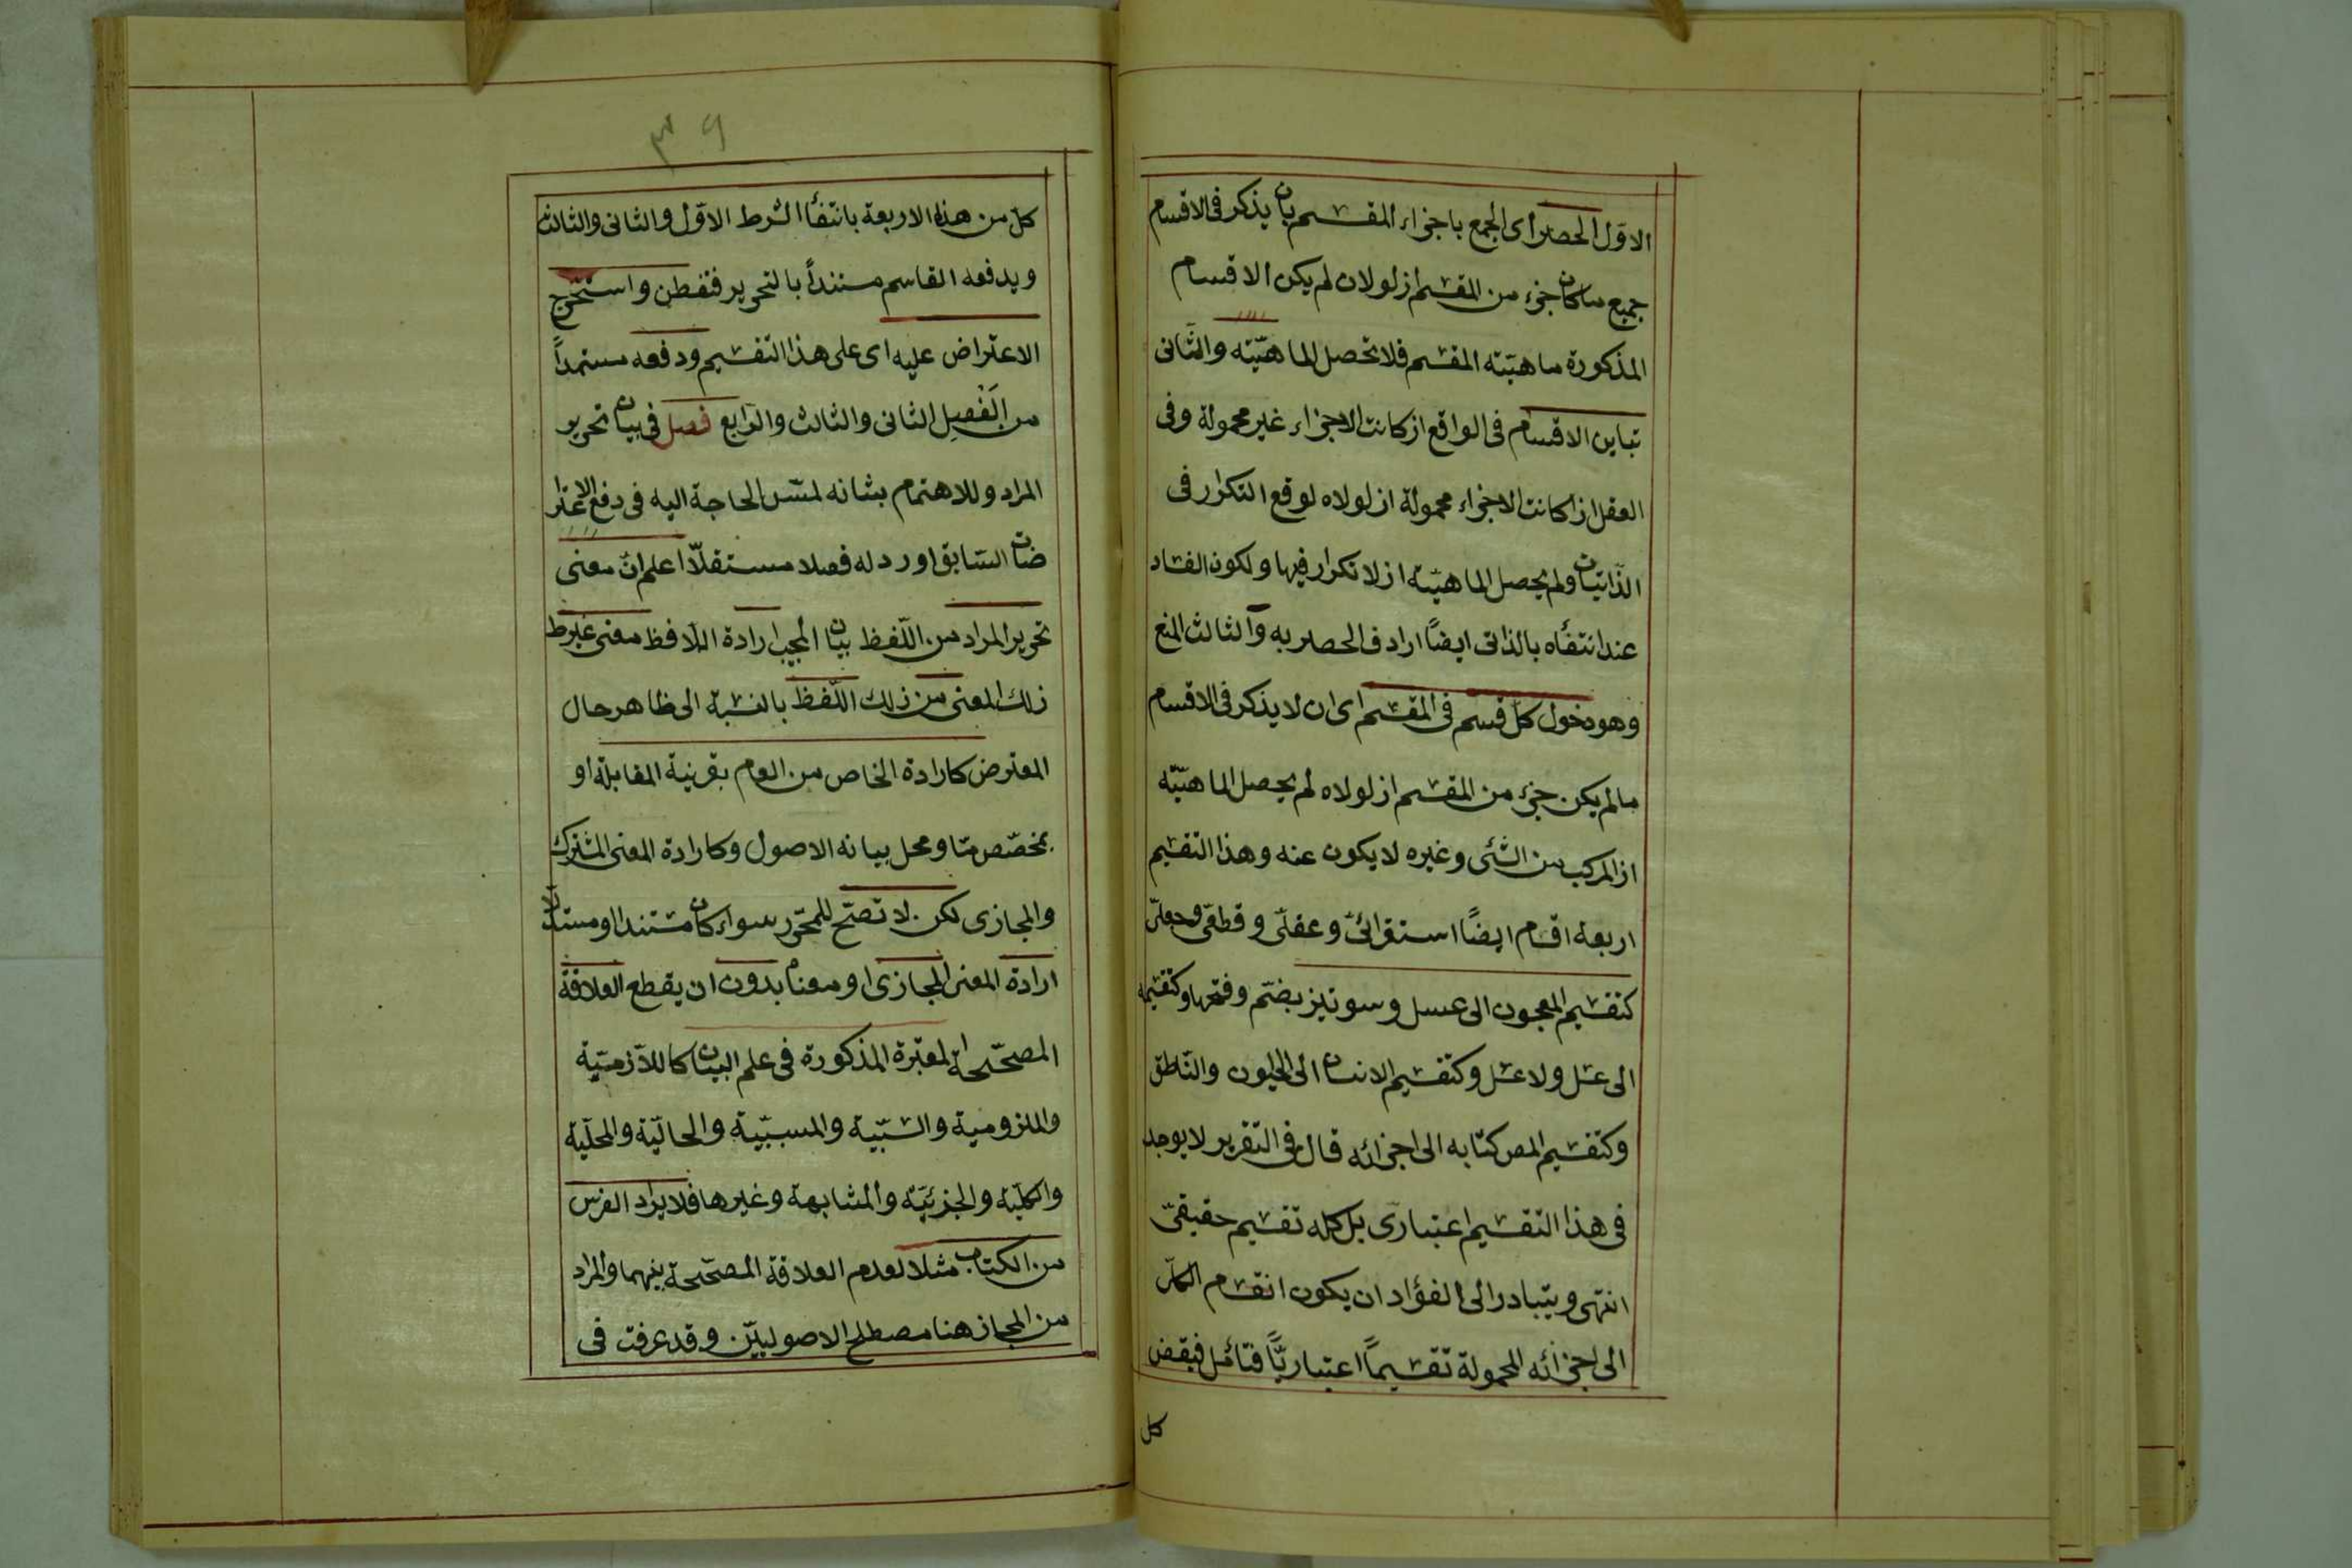 الاول الحصر اى الجمع باجزاء المقسم بان يذكر فى الاقسام
جميع ما كان جزء من المقسم اذ لولان لم يكن الاقسام
المذكورة ماهيّته المقسم فلا تحصل الماهيّته والثانى
تباين الاقسام فى الواقع اذ كانت الاجزاء غير محمولة وفى
العقل اذا كانت الاجزاء محمولة اذ لولاه لوقع التكرار فى
الذّاتيّات ولم يحصل الماهيّة اذ لا تكرار فيها ولكون الفساد
عند انتفأه بالذاتى ايضاً اراد فى الحصر به والثالث المنع
وهو دخول كل قسم فى المقسم اى ان لا يذكر فى الاقسام
مالم يكن جزء من المقسم اذ لولاه لم يحصل الماهيّته
اذ المركب من الشئى وغيره لا يكون عنه وهذا التقسيم
اربعة اقسام ايضاً استقرائى وعقلى وقطعى وجعلى
كتقسيم المعجون الى عسل وسونيز بضم وفتحها وكتقسيمه
الى عسل ولا عسل وكتقسيم الانسان الى الحيون والناطق
وكتقسيم المص كتابه الى اجزائه قال فى التقرير لا يوجد
فى هذا التقسيم اعتبارى بل كله تقسيم حقيقىّ
انتهى ويتبادر الى الفؤاد ان يكون انقسام الكل
الى اجزائه المحمولة تقسيماً اعتبارياً فتأمل فيقض
كل
٣٩
كل من هذه الاربعة بانتفأ الشرط الاول والثانى والثالث
ويدفعه القاسم مستنداً بالتحرير فتفطن واستخرج
الاعتراض عليه اى على هذا التقسيم ودفعه مستمداً
من الفصل الثانى والثالث والرابع فصل فى بيان تحرير
المراد وللاهتمام بشانه لمسّ الحاجة اليه فى دفع الاعترا
ضات السابق اورد له فصلا مستقلّا اعلم انّ معنى
تحرير المراد من اللّفظ بيان المجيب ارادة اللّافظ معنى غير ط
ذلك المعنى من ذلك اللّفظ بالنسبة الى ظاهر حال
المعترض كارادة الخاص من العام بقرنية المقابلة او
بمخصّص مّا ومحل بيانه الاصول وكارادة المعنى المشترك
والمجازى لكن لا تصّح للمحّرر سواء كان مستندا او مستدلّا
ارادة المعنى المجازى او معناه بدون ان يقطع العلاقة
المصحّحة المعتبرة المذكورة فى علم البيان كاللّازميّة
والملزومية والسّببية والمسبّبية والحاليّة والمحليّة
والكليّة والجزئيّة والمشابهة وغيرها فلا يراد الفرس
من الكتاب مثلا لعدم العلاقة المصحّحة بينهما والمراد
من المجاز هنا مصطلح الاصولييّن وقد عرفت فى